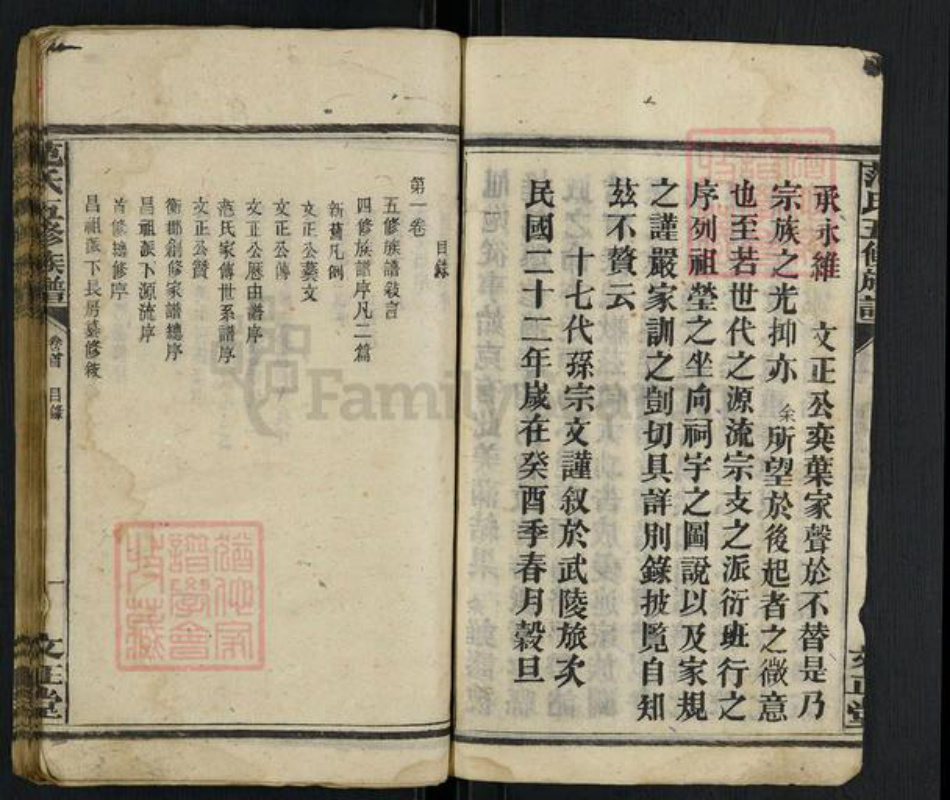 范氏五修族譜
承永維 文正公奕葉家聲於不替是乃
宗族之光抑亦余所望於後起者之微意
也至若世代之源流宗支之派衍班行之
序列祖塋之坐向祠宇之圖說以及家規
之謹嚴家訓之剴切具詳別錄披覽自知
茲不贅云
十七代孫宗文謹叙於武陵旅次
民國二十二年歲在癸酉季春月穀旦
文正堂
目錄
第一卷
五修族譜敍言
四修族譜序凡二篇
新舊凡例
文正公藝文
文正公傳
文正公歷由譜序
范氏家傳世系譜序
文正公贊
衡郡創修家譜總序
昌祖派下源流序
首修總修序
昌祖派下長房纂修
范氏五修族譜
卷首 目錄
一
文正堂
猶他家譜學會收藏
Family